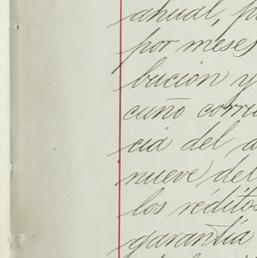 anual, p
por meses
bución y
cuño corri
cia del a
nueve) del
los rédito
garantía